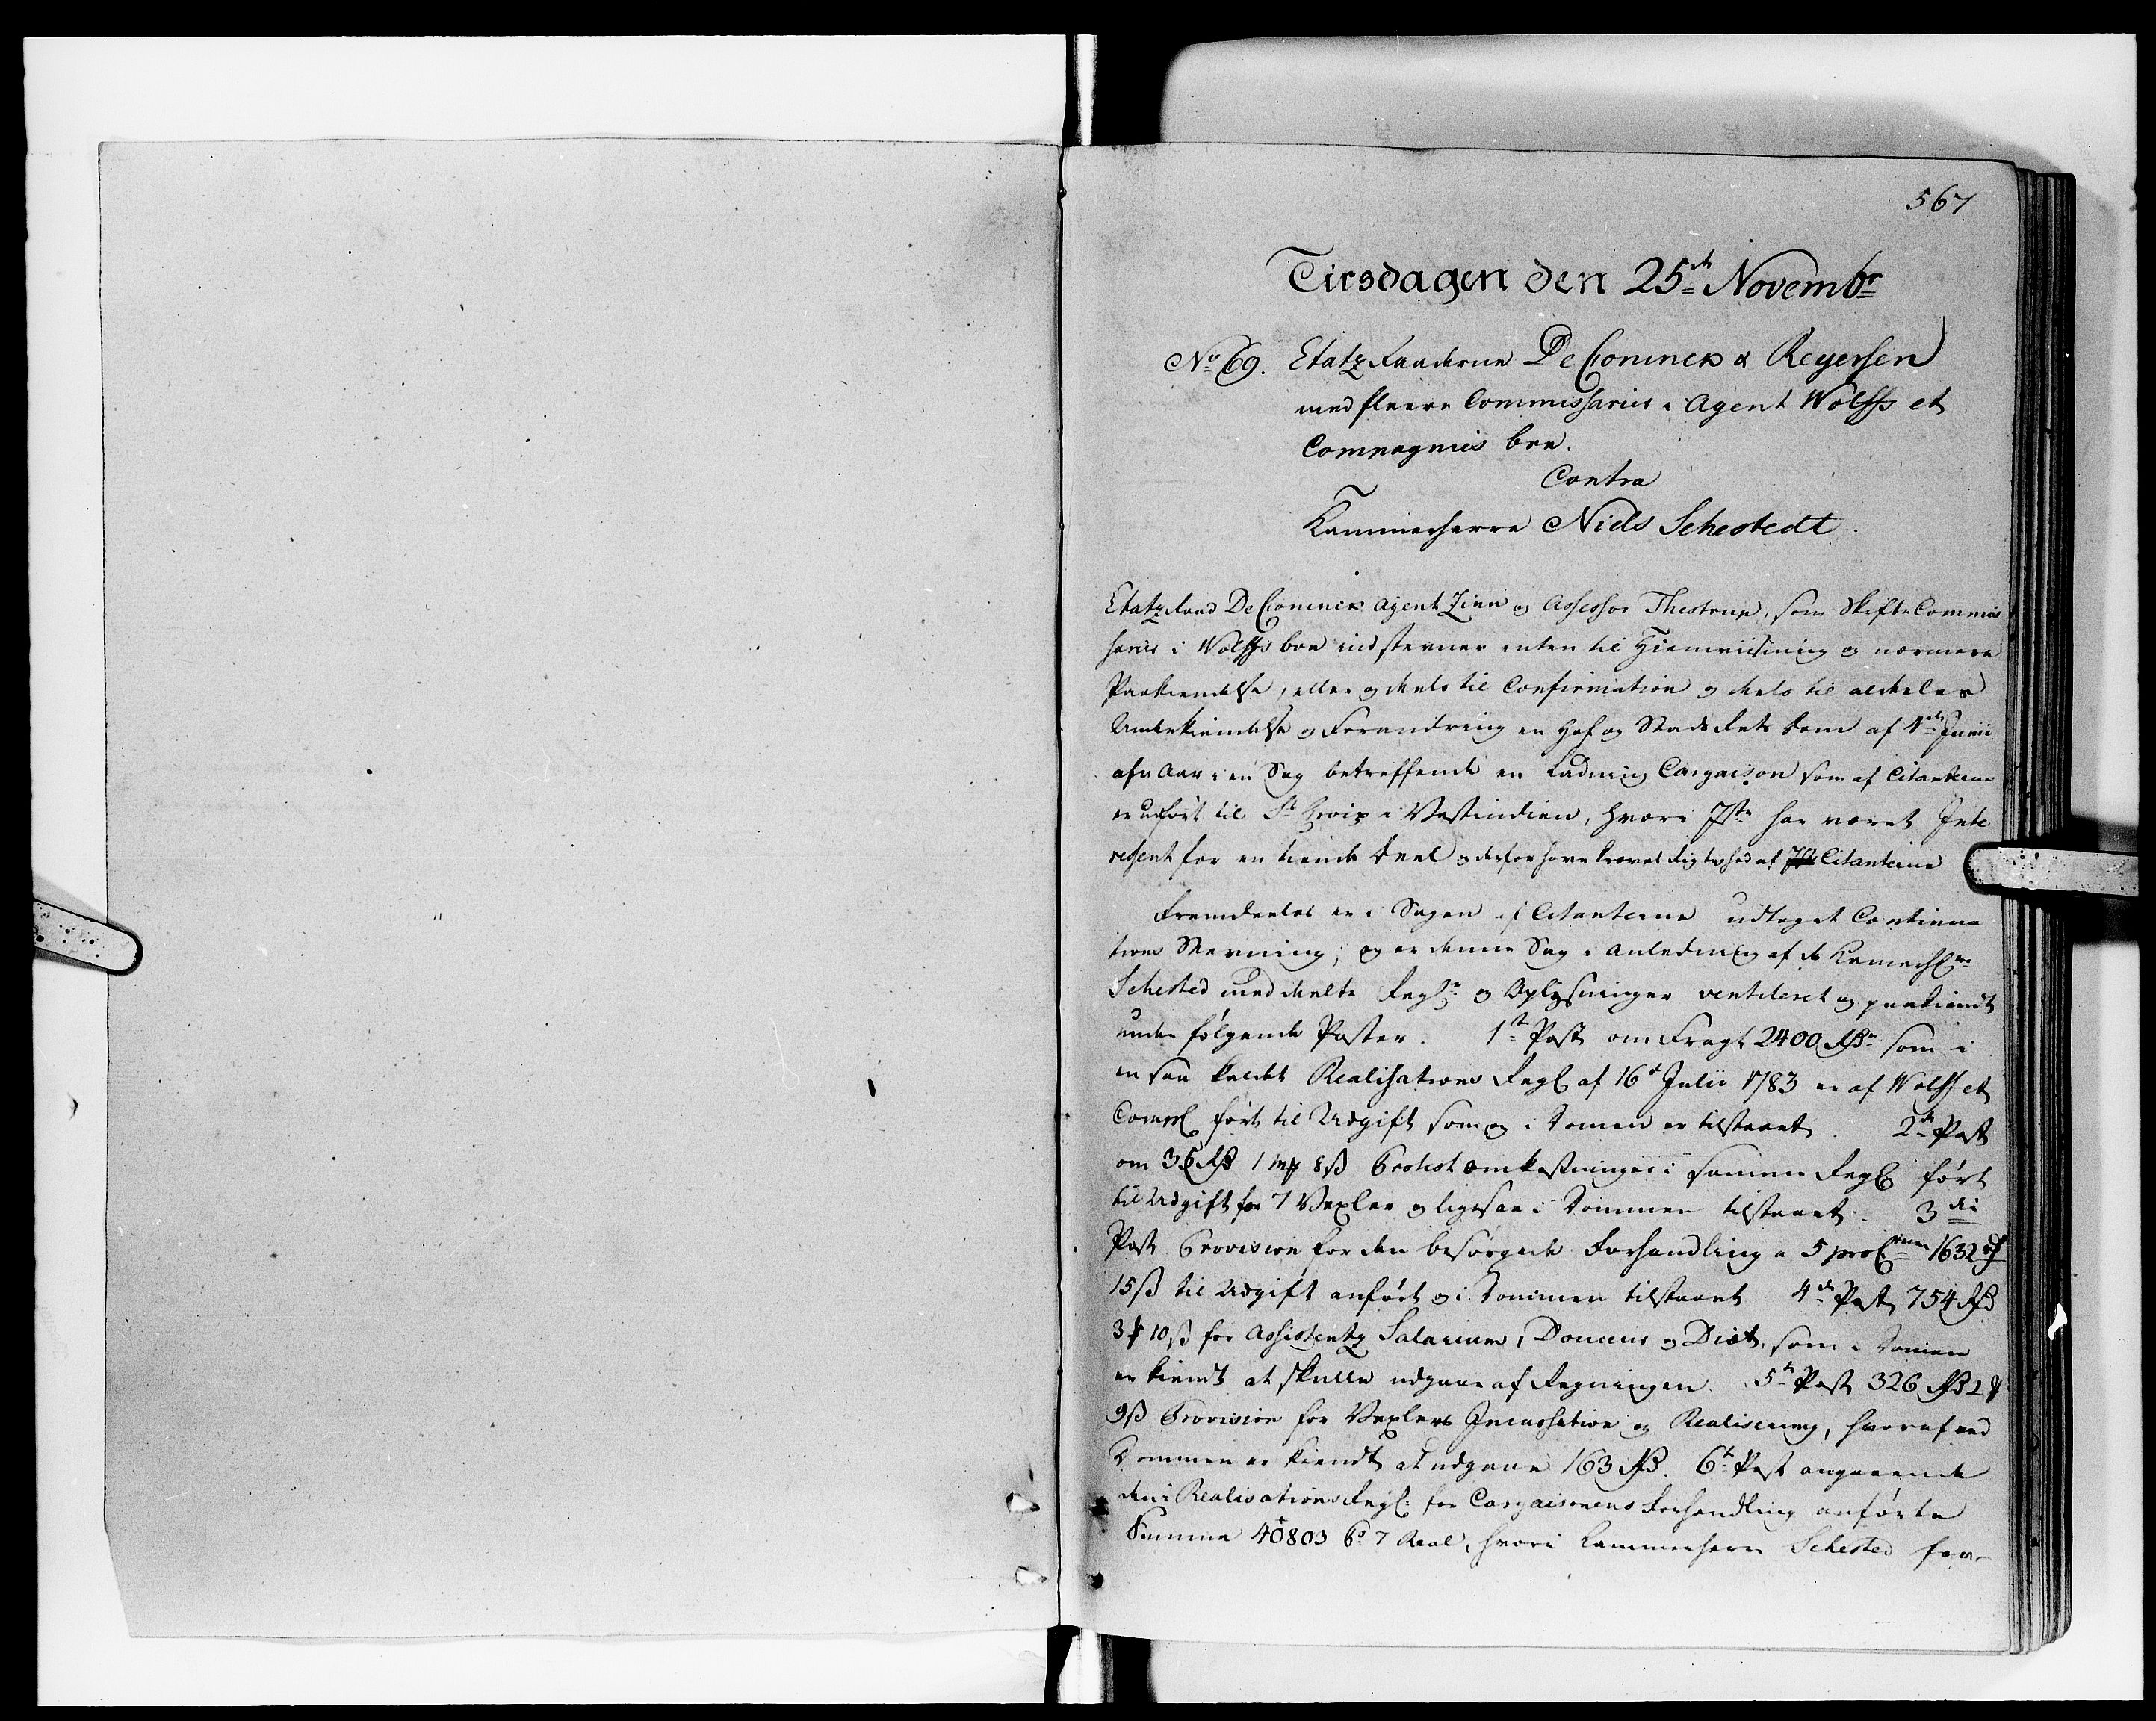 567
Tirsdagen den 25de Novembr
No 69. Etatz Raaderne De Coninck & Reyersen
med fleere Commissarier i Agent Wolffs et
Compagnies boe.
Contra
Kammerherre Niels Sehestedt.
Etatz Raad De Coninck Agent Zinn og Assessor Thestrup, som Skifte Commis
sarier i Wolffs boe indstevner enten til Hiemviisning og nærmere
Paakiendelse, eller og deels til Confirmation og deels til aldeles
Underkiendelse og Forandring en Hof og Stads Rets Dom af 4de Junii
afv Aar i en Sag betreffende en Ladning Cargaison som af Citanterne
er udført til St Croix i Vestindien, hvori Jste har været Inte
ressent for en tiende Deel og derfor have krævet Rigtighed af Citanterne
Fremdeeles er i Sagen af Citanterne udtaget Continua
tions Stevning; og er denne Sag i Anledning af de Kammerhre
Sehested meddeelte Regnr og Oplysninger ventileret og paakiendt
under følgende Poster. 1ste Post om Fragt 2400 Rdr som i
en saa kaldet Realisations Regn af 16d Julii 1783 er af Wolff et
Comp ført til Udgift som og i Domen er tilstaaet. 2de Post
om 36 Rd 1 mk 8 ß Protest Omkostninger i samme Regn ført
til Udgift for 7 Vexler og ligesaa i Dommen tilstaaet. 3die
Post Provision for den besørgede Forhandling a 5 proCent 1632 rd
15 ß til Udgift anført og i Dommen tilstaaet 4de Post 754 Rd
3 mk 10 ß for Assistentz Salarium, Douceur og Diæt, som i Domen
er kiendt at skulle udgaae af Regningen. 5te Post 326 Rd 2 mk
9 ß Provision for Vexlers Incassation og Realisering, hvoraf ved
Dommen er kiendt at udgaae 163 Rd. 6te Post angaaende
den i Realisations Regn: for Cargaisonens Forhandling anførte
Summa 40803 Ps 7 Real, hvori Kammerherre Sehested for-